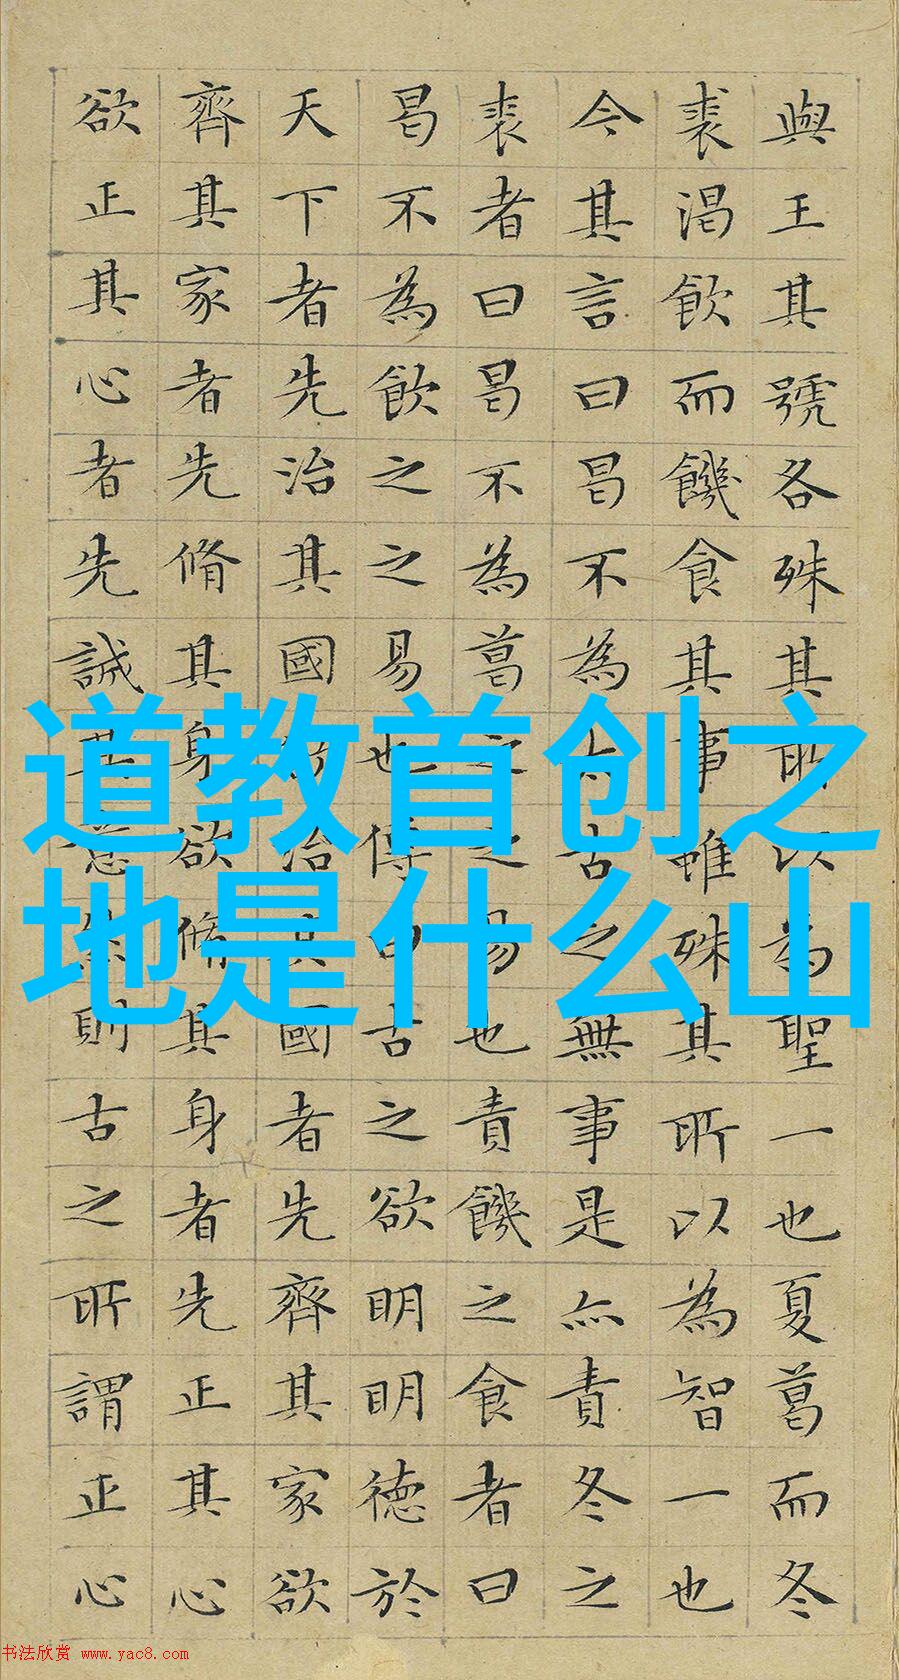 與王其號各殊其所以為聖一也夏葛而冬
裘渴飲而饑食其事雖殊其所以為智一也
今其言曰曷不為太古之無事是亦責冬之
裘者曰曷不為葛之之易也責饑之食者曰
曷不為飲之之易也傳曰古之欲明明德於
天下者先治其國欲治其國者先齊其家欲
齊其家者先脩其身欲脩其身者先正其心
欲正其心者先誠其意然則古之所謂正心
道教首创之
地是什么山
书法欣赏 www.yac8.com